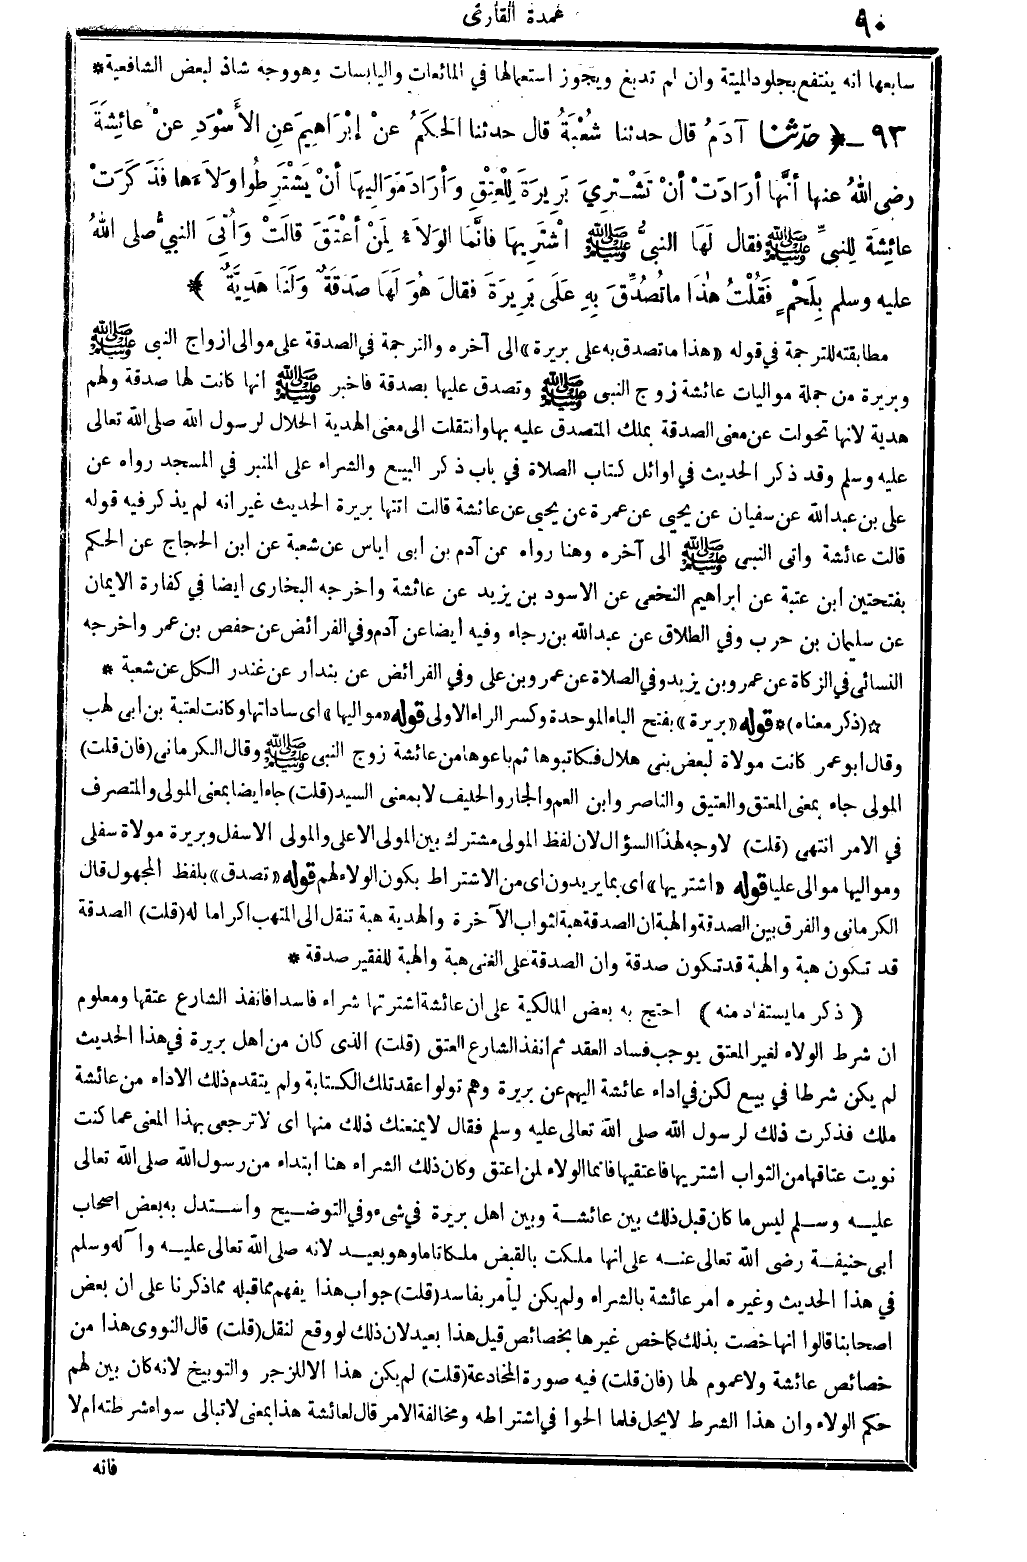 ٩٠
عمدة القارئ
سابعها انه ينتفع بجلود الميتة وان لم تدبغ ويجوز استعمالها في المائعات واليابسات وهو وجه شاذ لبعض الشافعية *
٩٣ - ﴿ حدّثنا آدَمُ قال حدثنا شُعْبَةُ قال حدثنا الحَكَمُ عنْ إبْرَاهِيمَ عنِ الأَسْوَدِ عنْ عائِشَةَ
رضى اللهُ عنها أنَّها أرَادَتْ أنْ تَشْتَرِيَ بَرِيرَةَ لِلْعِتْقِ وَأرَادَ مَوَاليهَا أنْ يَشْتَرِطُوا وَلاَءَها فَذَكَرَتْ
عائِشَةُ لِلنبيِّ ﷺ فقال لَهَا النبيُّ ﷺ اشْتَرِيهَا فانَّمَا الوَلاَءُ لِمَنْ أعْتَقَ قالَتْ وَأُتِىَ النبيُّ صلى اللهُ
عليه وسلم بِلَحْمٍ فَقُلْتُ هٰذَا ما تُصُدِّقَ بِهِ عَلَى بَرِيرَةَ فقالَ هُوَ لَهَا صَدَقَةٌ وَلَنَا هَدِيَّةٌ ﴾
مطابقته للترجمة في قوله «هذا ما تصدق به على بريرة» الى آخره والترجمة في الصدقة على موالى ازواج النبى ﷺ
وبريرة من جملة مواليات عائشة زوج النبى ﷺ وتصدق عليها بصدقة فاخبر ﷺ انها كانت لها صدقة ولهم
هدية لانها تحولت عن معنى الصدقة بملك المتصدق عليه بها وانتقلت الى معنى الهدية الحلال لرسول الله صلى الله تعالى
عليه وسلم وقد ذكر الحديث في اوائل كتاب الصلاة في باب ذكر البيع والشراء على المنبر في المسجد رواه عن
على بن عبدالله عن سفيان عن يحيى عن عمرة عن يحيى عن عائشة قالت اتتها بريرة الحديث غير انه لم يذكر فيه قوله
قالت عائشة واتى النبى ﷺ الى آخره وهنا رواه عن آدم بن ابى اياس عن شعبة عن ابن الحجاج عن الحكم
بفتحتين ابن عتبة عن ابراهيم النخعى عن الاسود بن يزيد عن عائشة واخرجه البخارى ايضا في كفارة الايمان
عن سليمان بن حرب وفي الطلاق عن عبدالله بن رجاء وفيه ايضا عن آدم وفي الفرائض عن حفص بن عمر واخرجه
النسائى في الزكاة عن عمرو بن يزيد وفي الصلاة عن عمرو بن على وفي الفرائض عن بندار عن غندر الكل عن شعبة *
☆ (ذكر معناه) * قوله «بريرة» بفتح الباء الموحدة وكسر الراء الاولى قوله «مواليها» اى ساداتها وكانت لعتبة بن ابى لهب
وقال ابو عمر كانت مولاة لبعض بنى هلال فكاتبوها ثم باعوها من عائشة زوج النبى ﷺ وقال الكرمانى (فان قلت)
المولى جاء بمعنى المعتق والعتيق والناصر وابن العم والجار والحليف لا بمعنى السيد (قلت) جاء ايضا بمعنى المولى والمتصرف
في الامر انتهى (قلت) لا وجه لهذا السؤال لان لفظ المولى مشترك بين المولى الاعلى والمولى الاسفل وبريرة مولاة سفلى
ومواليها موالى عليا قوله «اشتريها» اى بما يريدون اى من الاشتراط بكون الولاء لهم قوله «تصدق» بلفظ المجهول قال
الكرمانى والفرق بين الصدقة والهبة ان الصدقة هبة لثواب الآخرة والهدية هبة تنقل الى المتهب اكراما له (قلت) الصدقة
قد تكون هبة والهبة قد تكون صدقة وان الصدقة على الغنى هبة والهبة للفقير صدقة *
( ذكر ما يستفاد منه ) احتج به بعض المالكية على ان عائشة اشترتها شراء فاسدا فانفذ الشارع عتقها ومعلوم
ان شرط الولاء لغير المعتق يوجب فساد العقد ثم انفذ الشارع العتق (قلت) الذى كان من اهل بريرة في هذا الحديث
لم يكن شرطا في بيع لكن في اداء عائشة اليهم عن بريرة وهم تولوا عقد تلك الكتابة ولم يتقدم ذلك الاداء من عائشة
ملك فذكرت ذلك لرسول الله صلى الله تعالى عليه وسلم فقال لا يمنعنك ذلك منها اى لا ترجعى بهذا المعنى عما كنت
نويت عتاقها من الثواب اشتريها فاعتقيها فانما الولاء لمن اعتق وكان ذلك الشراء هنا ابتداء من رسول الله صلى الله تعالى
عليه وسلم ليس ما كان قبل ذلك بين عائشة وبين اهل بريرة في شىء وفي التوضيح واستدل به بعض اصحاب
ابى حنيفة رضى الله تعالى عنه على انها ملكت بالقبض ملكا تاما وهو بعيد لانه صلى الله تعالى عليه وآله وسلم
في هذا الحديث وغيره امر عائشة بالشراء ولم يكن ليأمر بفاسد (قلت) جواب هذا يفهم مما قبله مما ذكرنا على ان بعض
اصحابنا قالوا انها خصت بذلك كما خص غيرها بخصائص قيل هذا بعيد لان ذلك لو وقع لنقل (قلت) قال النووى هذا من
خصائص عائشة ولا عموم لها (فان قلت) فيه صورة المخادعة (قلت) لم يكن هذا الا للزجر والتوبيخ لانه كان بين لهم
حكم الولاء وان هذا الشرط لا يحل فلما الحوا في اشتراطه ومخالفة الامر قال لعائشة هذا بمعنى لا تبالى سواء شرطته ام لا
فانه